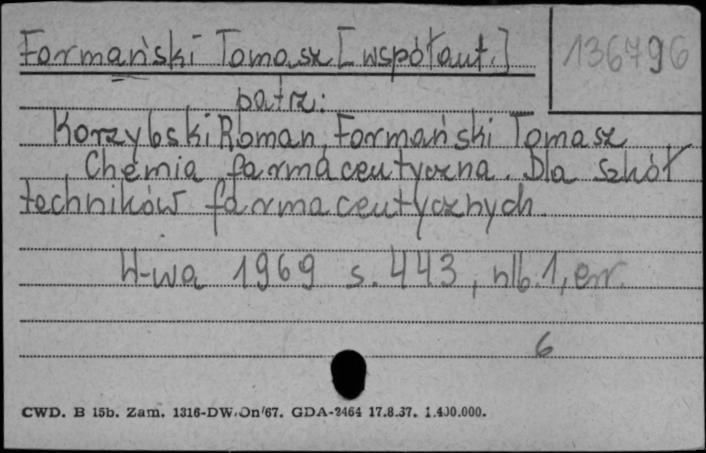 Formański Tomasz [współaut.]
136796
patrz:
Korzybski Roman, Formański Tomasz
Chemia farmaceutyczna. Dla szkół
techników farmaceutycznych.
W-wa 1969 s. 443, nlb. 1, err.
6
CWD. B 15b. Zam. 1316-DW/On/67. GDA-2464 17.8.67. 1.400.000.